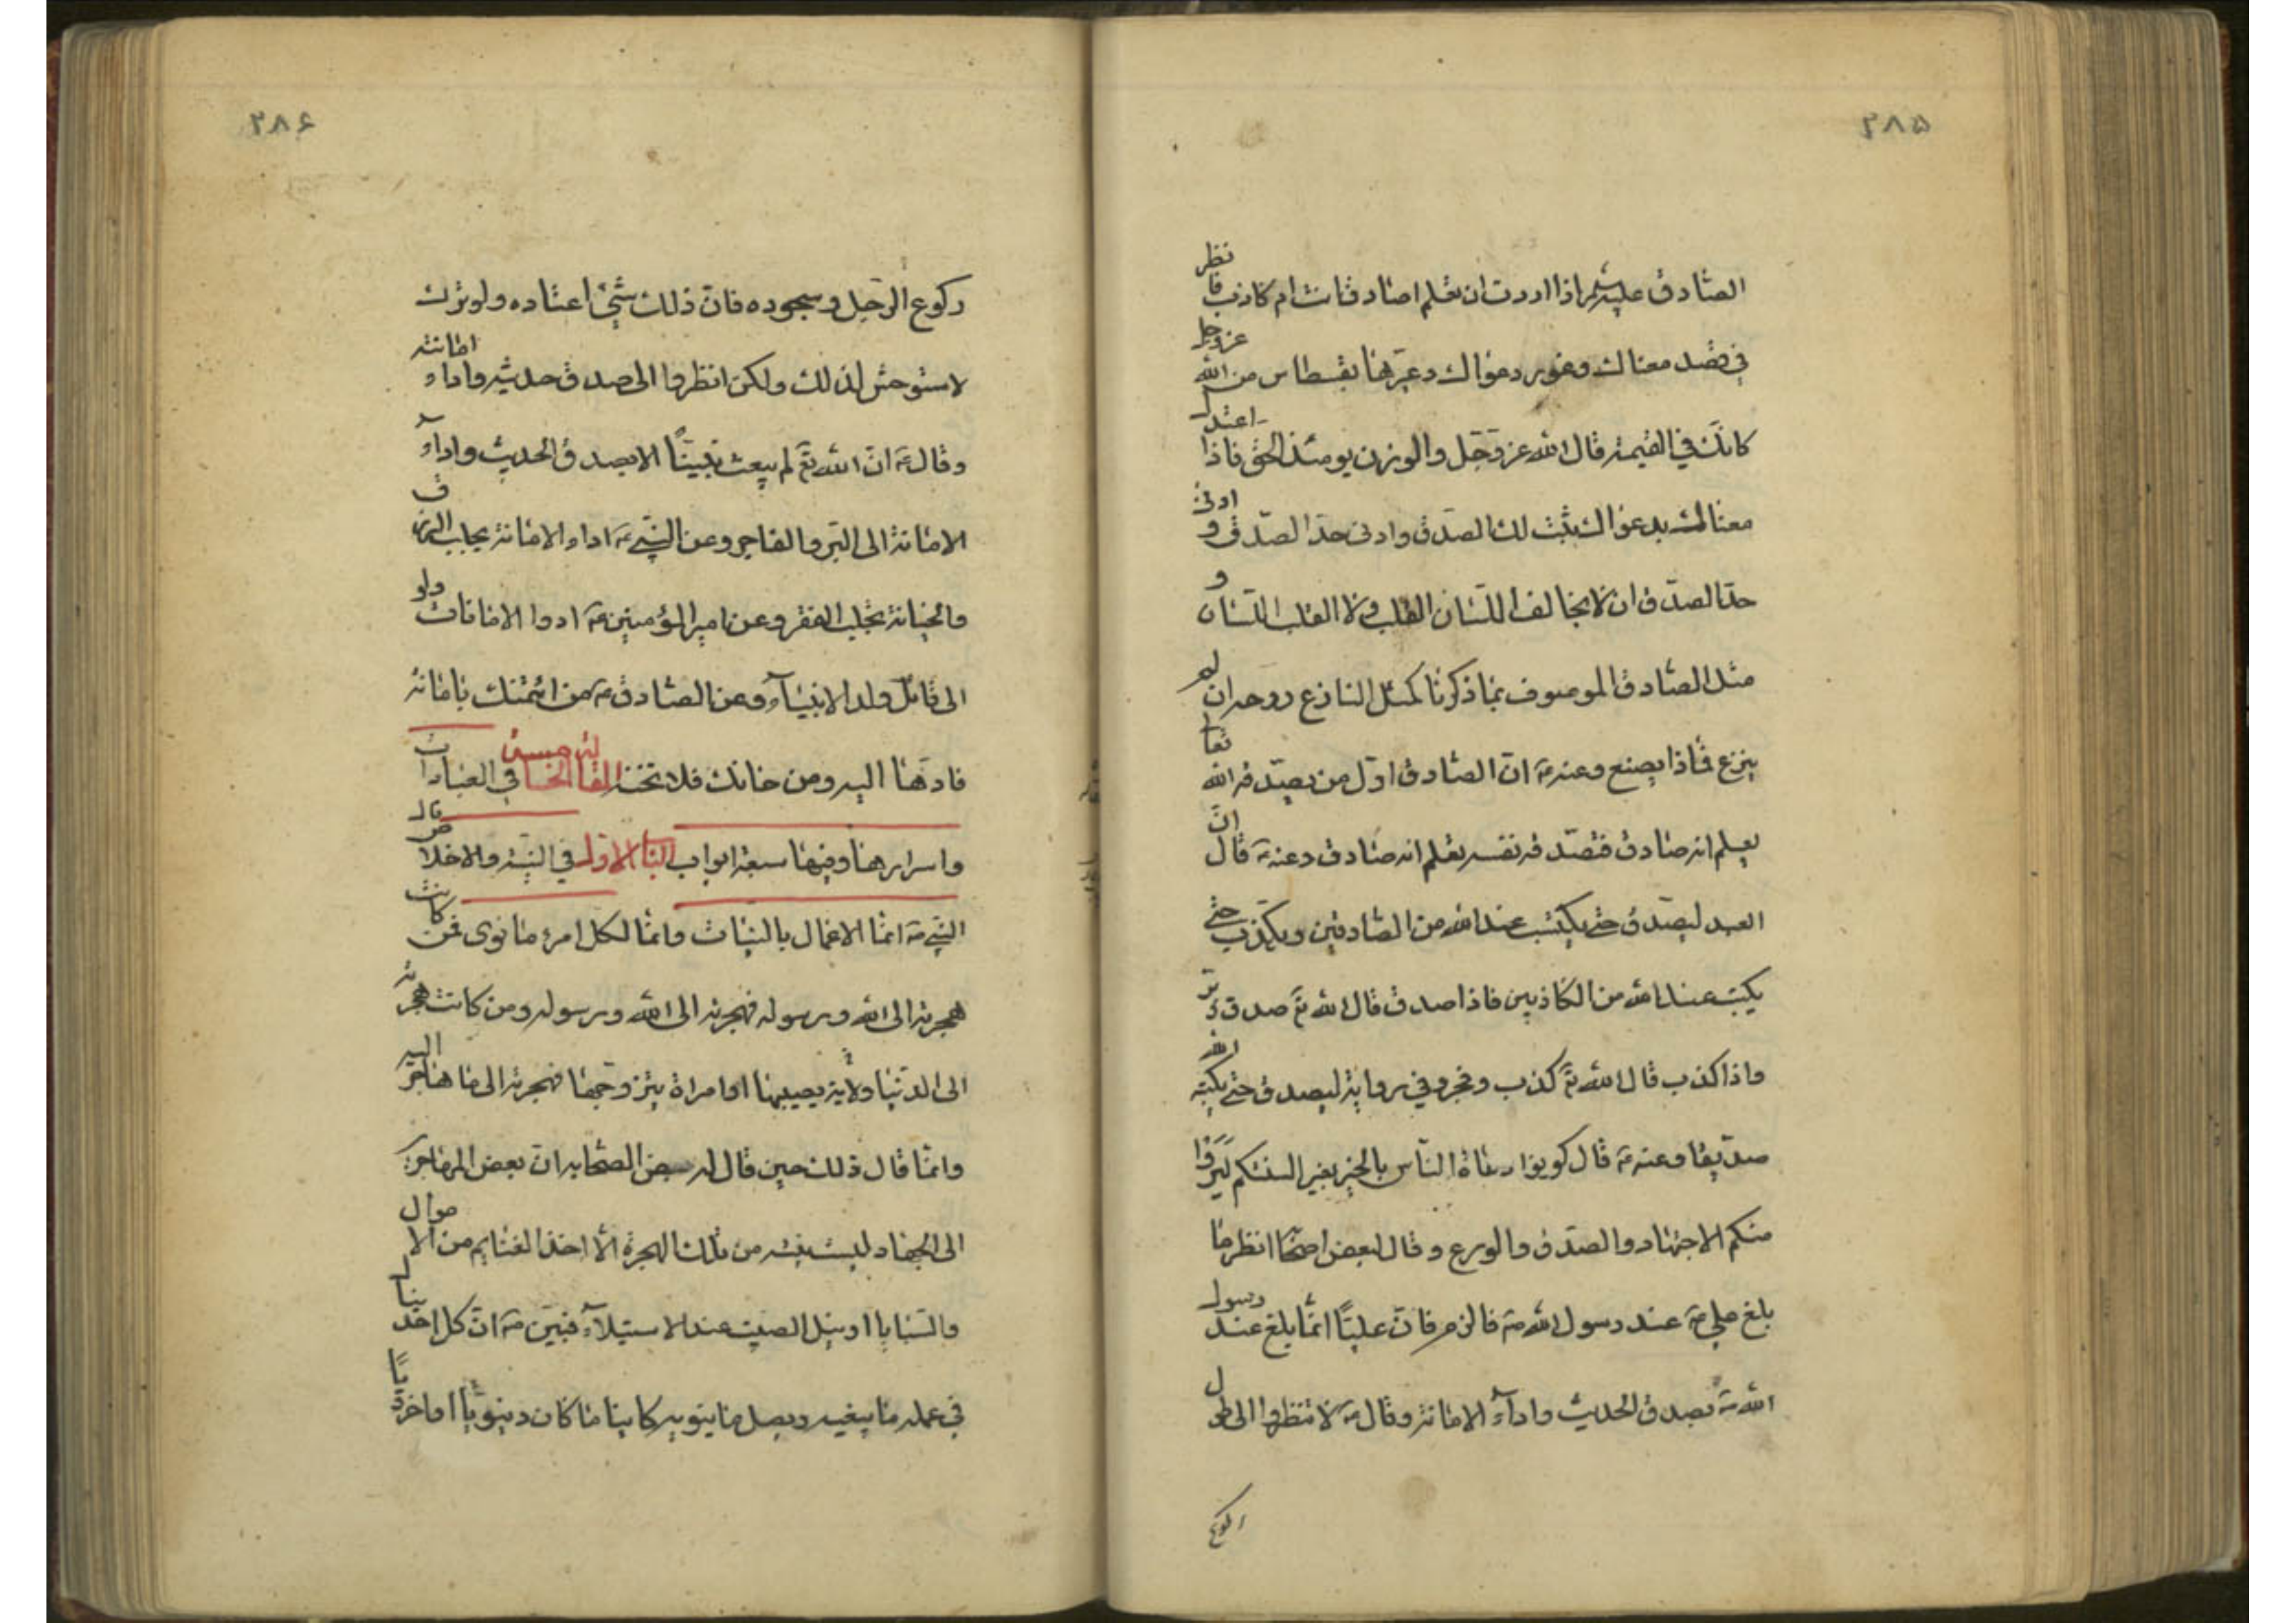 ۲۸۵
الصادق عليه السلم اذا اردت ان تعلم اصادق انت ام كاذب فانظر
في قصد معناك وغور دعواك وعيرهما بقسطاس من الله عز وجل
كانك في القيمة قال الله عز وجل والوزن يومئذ الحق فاذا اعتدل
معناك بدعواك ثبت لك الصدق وادنى حد الصدق و ادنى
حد الصدق ان لا يخالف اللسان القلب ولا القلب اللسان و
مثل الصادق الموصوف بما ذكرنا كمثل النازع روحه ان لم
ينزع فماذا يصنع وعنه ع ان الصادق اول من يصدقه الله تعالى
يعلم انه صادق فتصدقه نفسه تعلم انه صادق وعنه ع قال ان
العبد ليصدق حتى يكتب عند الله من الصادقين ويكذب حتى
يكتب عند الله من الكاذبين فاذا صدق قال الله تع صدق وبر
واذا كذب قال الله تع كذب وفجر وفي رواية ليصدق حتى يكتبه الله
صديقا وعنه ع قال كونوا دعاة الناس بالخير بغير السنتكم ليروا
منكم الاجتهاد والصدق والورع وقال لبعض اصحابه انظر ما
بلغ علي ع عند رسول الله ص فالزمه فان عليا انما بلغ عند رسول
الله ص بصدق الحديث واداء الامانة وقال ع لا تنظروا الى طول
ركوع
۲۸۶
ركوع الرجل وسجوده فان ذلك شئ اعتاده ولو ترك
لاستوحش لذلك ولكن انظروا الى صدق حديثه واداء امانته
وقال ع ان الله تع لم يبعث نبينا الا بصدق الحديث واداء
الامانة الى البر والفاجر وعن النبي ص اداء الامانة يجلب الرزق
والخيانة تجلب الفقر وعن امير المؤمنين ع ادوا الامانات ولو
الى قاتل ولد الانبياء وعن الصادق ع من ائتمنك بامانة
فادها اليه ومن خانك فلا تخنه المقالة الخامسة في العبادات
واسرارها وفيها سبعة ابواب الباب الاول في النية والاخلاص قال
النبي ص انما الاعمال بالنيات وانما لكل امرء ما نوى فمن كانت
هجرته الى الله ورسوله فهجرته الى الله ورسوله ومن كانت هجرته
الى الدنيا ولاية يصيبها او امراة يتزوجها فهجرته الى ما هاجر اليه
وانما قال ذلك حين قال له بعض الصحابه ان بعض المهاجرين
الى الجهاد ليست نيته من تلك الهجرة الا اخذ الغنايم من الاموال
والسبايا او نيل الصيت عند الاستيلاء فبين ص ان كل احد ينال
في عمله ما يبغيه ويصل ما ينويه كاينا ما كان دنيويا او اخرويا